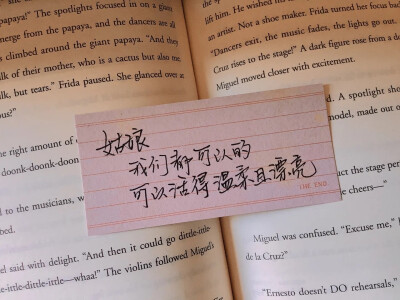 papaya!" The spotlights focused in on a giant
emerge from the papaya, and the dancers are al
s climbed around the giant papaya. "And they
lk of their mother, who is a cactus but also me
lk, but tears." Frida paused. She glanced over at
ous?"
the right amount of
doonk-doonk-doon
to the musicians, w
ed.
el said with delight. "And then it could go dittle-ittle-
ttle-ittle-ittle—whaa!" The violins followed Miguel's
life him. He wished his
an artist. Not a shoe maker. Frida turned her focus back
"Dancers exit, the music fades, the lights go out.
Cruz rises to the stage!" A dark figure rose from a do
Miguel moved closer with excitement.
A spotlight sho
model, made out o
uct the stage per
e cheers—"
Miguel was confused. "Excuse me," h
de la Cruz?"
"Ernesto doesn't DO rehearsals,"
姑娘
我们都可以的
可以活得温柔且漂亮
THE END